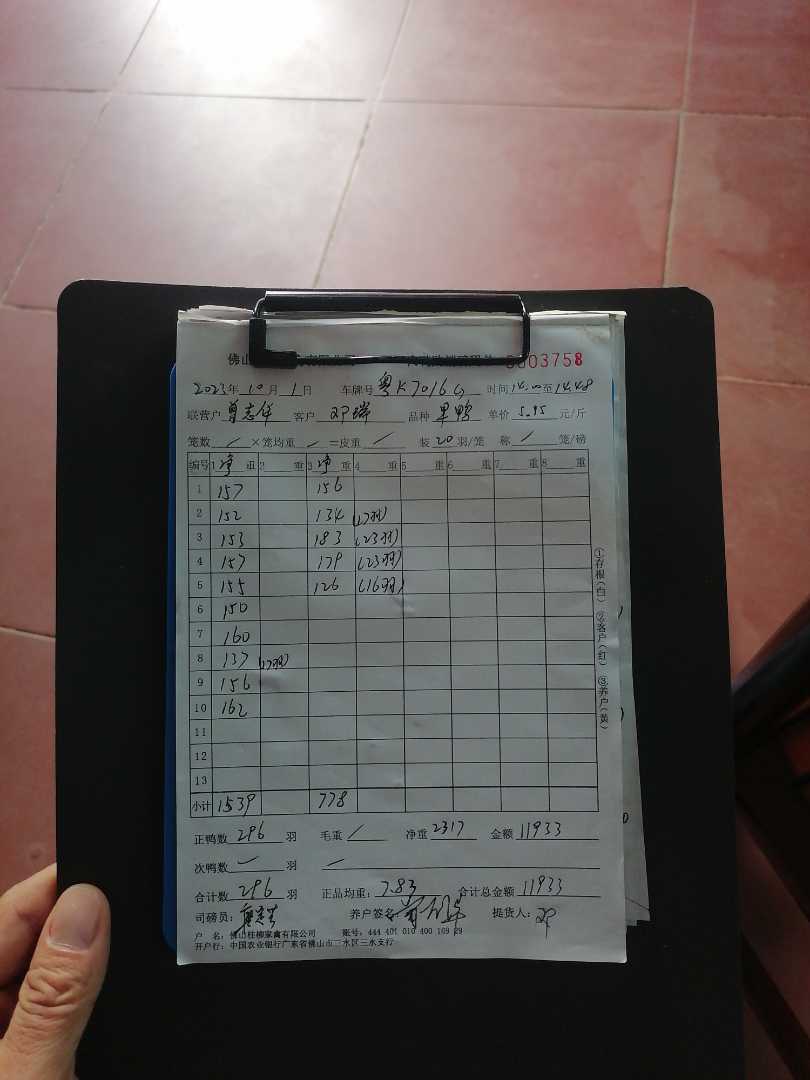 佛山
03758
2023年 10月 1日 车牌号 粤K7016G 时间 14.00至14.48
联营户 曾志华 客户 邓瑞 品种 果鸭 单价 5.15 元/斤
笼数 / ×笼均重 / =皮重 / 装20羽/笼 称 / 笼/磅
编号 1 净 重 2 重 3 净 重 4 重 5 重 6 重 7 重 8 重
1 157 156
2 152 134 (17羽)
3 153 183 (23羽)
4 157 179 (23羽)
5 155 126 (16羽)
6 150
7 160
8 137 (17羽)
9 156
10 162
11
12
13
小计 1539 778
正鸭数 296 羽 毛重 / 净重 2317 金额 11933
次鸭数 — 羽 —
合计数 296 羽 正品均重: 7.83 合计总金额 11933
司磅员: 养户签名 提货人: 邓
户 名: 佛山桂柳家禽有限公司 账号: 444 401 010 400 109 29
开户行: 中国农业银行广东省佛山市三水区三水支行
①存根(白) ②客户(红) ③养户(黄)